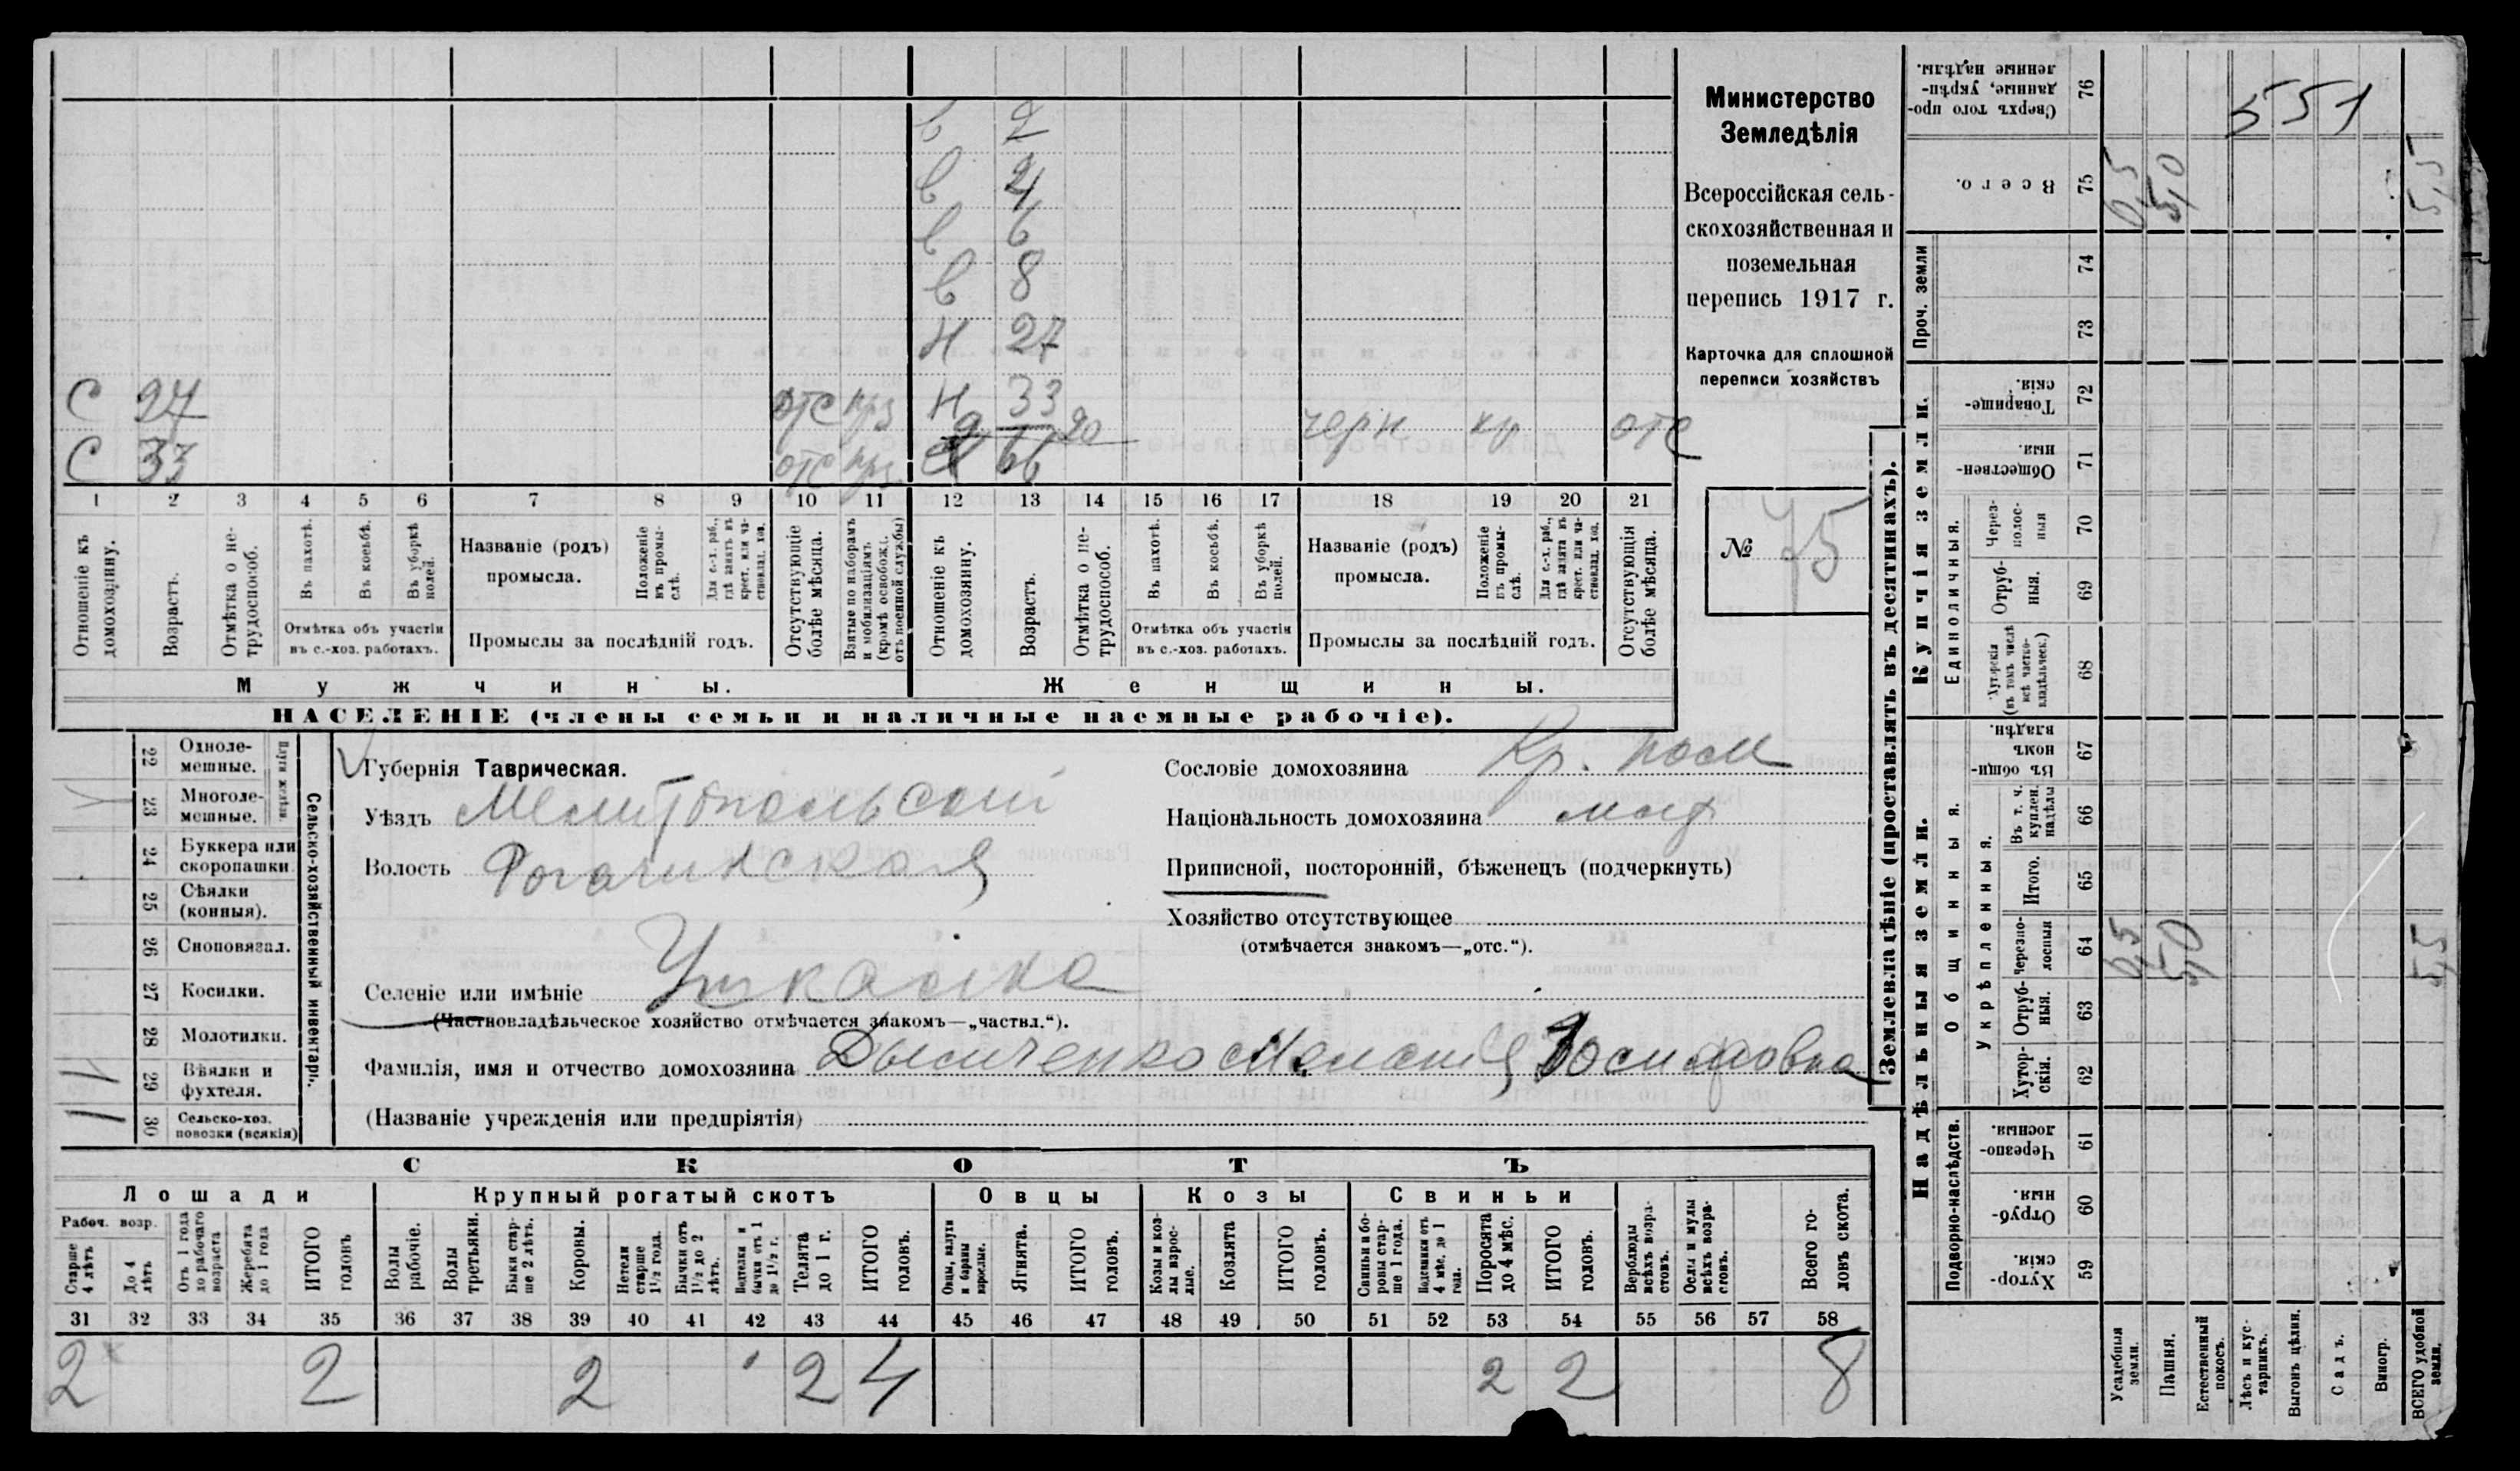 Министерство
Земледѣлія
Всероссійская сель-
скохозяйственная и
поземельная
перепись 1917 г.
Карточка для сплошной
переписи хозяйствъ
№ 75
в 2
в 4
в 6
в 8
н 27
С 27 отс н 33
д 20 черн кр отс
С 33 отс 66
1 2 3 4 5 6 7 8 9 10 11 12 13 14 15 16 17 18 19 20 21
Отношеніе къ домохозяину.
Возрастъ.
Отмѣтка о не-трудоспособ.
Въ пахотѣ.
Въ косьбѣ.
Въ уборкѣ полей.
Отмѣтка объ участіи
въ с.-хоз. работахъ.
Названіе (родъ)
промысла.
Положеніе въ промы-слѣ.
Для с.-х. раб., гдѣ занятъ въ крест. или ча-стновлад. хоз.
Промыслы за послѣдній годъ.
Отсутствующіе болѣе мѣсяца.
Взятые по наборамъ и мобилизаціямъ (кромѣ освобожд. отъ военной службы)
Отношеніе къ домохозяину.
Возрастъ.
Отмѣтка о не-трудоспособ.
Въ пахотѣ.
Въ косьбѣ.
Въ уборкѣ полей.
Отмѣтка объ участіи
въ с.-хоз. работахъ.
Названіе (родъ)
промысла.
Положеніе въ промы-слѣ.
Для с.-х. раб., гдѣ занята въ крест. или ча-стновлад. хоз.
Промыслы за послѣдній годъ.
Отсутствующія болѣе мѣсяца.
Мужчины. Женщины.
НАСЕЛЕНІЕ (члены семьи и наличные наемные рабочіе).
Сельско-хозяйственный инвентарь.
Плуги желѣзн.
22 Одноле-мешные.
23 Многоле-мешные.
24 Буккера или скоропашки
25 Сѣялки (конныя).
26 Сноповязал.
27 Косилки.
28 Молотилки.
29 Вѣялки и фухтеля.
30 Сельско-хоз. повозки (всякія)
Губернія Таврическая.
Уѣздъ Мелитопольскій
Волость Рогачинская
Селеніе или имѣніе Ушкалка
(Частновладѣльческое хозяйство отмѣчается знакомъ—„частвл.“).
Фамилія, имя и отчество домохозяина Маланія Іосифовна
(Названіе учрежденія или предпріятія)
Сословіе домохозяина Кр.
Національность домохозяина
Приписной, посторонній, бѣженецъ (подчеркнуть)
Хозяйство отсутствующее
(отмѣчается знакомъ—„отс.“).
СКОТЪ
Лошади Крупный рогатый скотъ Овцы Козы Свиньи
Рабоч. возр.
Старше 4 лѣтъ
До 4 лѣтъ
Отъ 1 года до рабочаго возраста
Жеребята до 1 года
ИТОГО головъ
Волы рабочіе.
Волы третьяки.
Быки стар-ше 2 лѣтъ.
Коровы.
Нетели старше 1½ года.
Бычки отъ 1½ до 2 лѣтъ.
Подтелки и бычки отъ 1 до 1½ г.
Телята до 1 г.
ИТОГО головъ.
Овцы, валухи и бараны взрослые.
Ягнята.
ИТОГО головъ.
Козы и коз-лы взрос-лые.
Козлята
ИТОГО головъ.
Свиньи и бо-ровы стар-ше 1 года.
Подсвинки отъ 4 мѣс. до 1 года.
Поросята до 4 мѣс.
ИТОГО головъ.
Верблюды всѣхъ возра-стовъ.
Ослы и мулы всѣхъ возра-стовъ.
Всего го-ловъ скота.
31 32 33 34 35 36 37 38 39 40 41 42 43 44 45 46 47 48 49 50 51 52 53 54 55 56 57 58
2 2 2 2 4 2 2 8
Землевладѣніе (проставлять въ десятинахъ).
Купчія земли.
Надѣльныя земли.
76 Сверхъ того про-данные, укрѣп-ленные надѣлы.
551
75 Всего. 0,5 5,0 5,5
Проч. земли
74
73
72 Товарище-скія.
71 Обществен-ныя.
Единоличныя.
70 Через-полос-ныя
69 Отруб-ныя.
68 Хуторскія (въ томъ числѣ всѣ частно-владѣльческ.)
67 Въ общи-номъ владѣн.
Общинныя.
Укрѣпленныя.
66 Въ т. ч. куплен. надѣлы
65 Итого.
64 Черезпо-лосныя 0,5 5,0 5,5
63 Отруб-ныя.
62 Хутор-скія.
Подворно-наслѣдств.
61 Черезпо-лосныя.
60 Отруб-ныя.
59 Хутор-скія.
Усадебныя земли.
Пашня.
Естественный покосъ.
Лѣсъ и кус-тарникъ.
Выгонъ цѣлин.
Садъ.
Виногр.
ВСЕГО удобной земли.